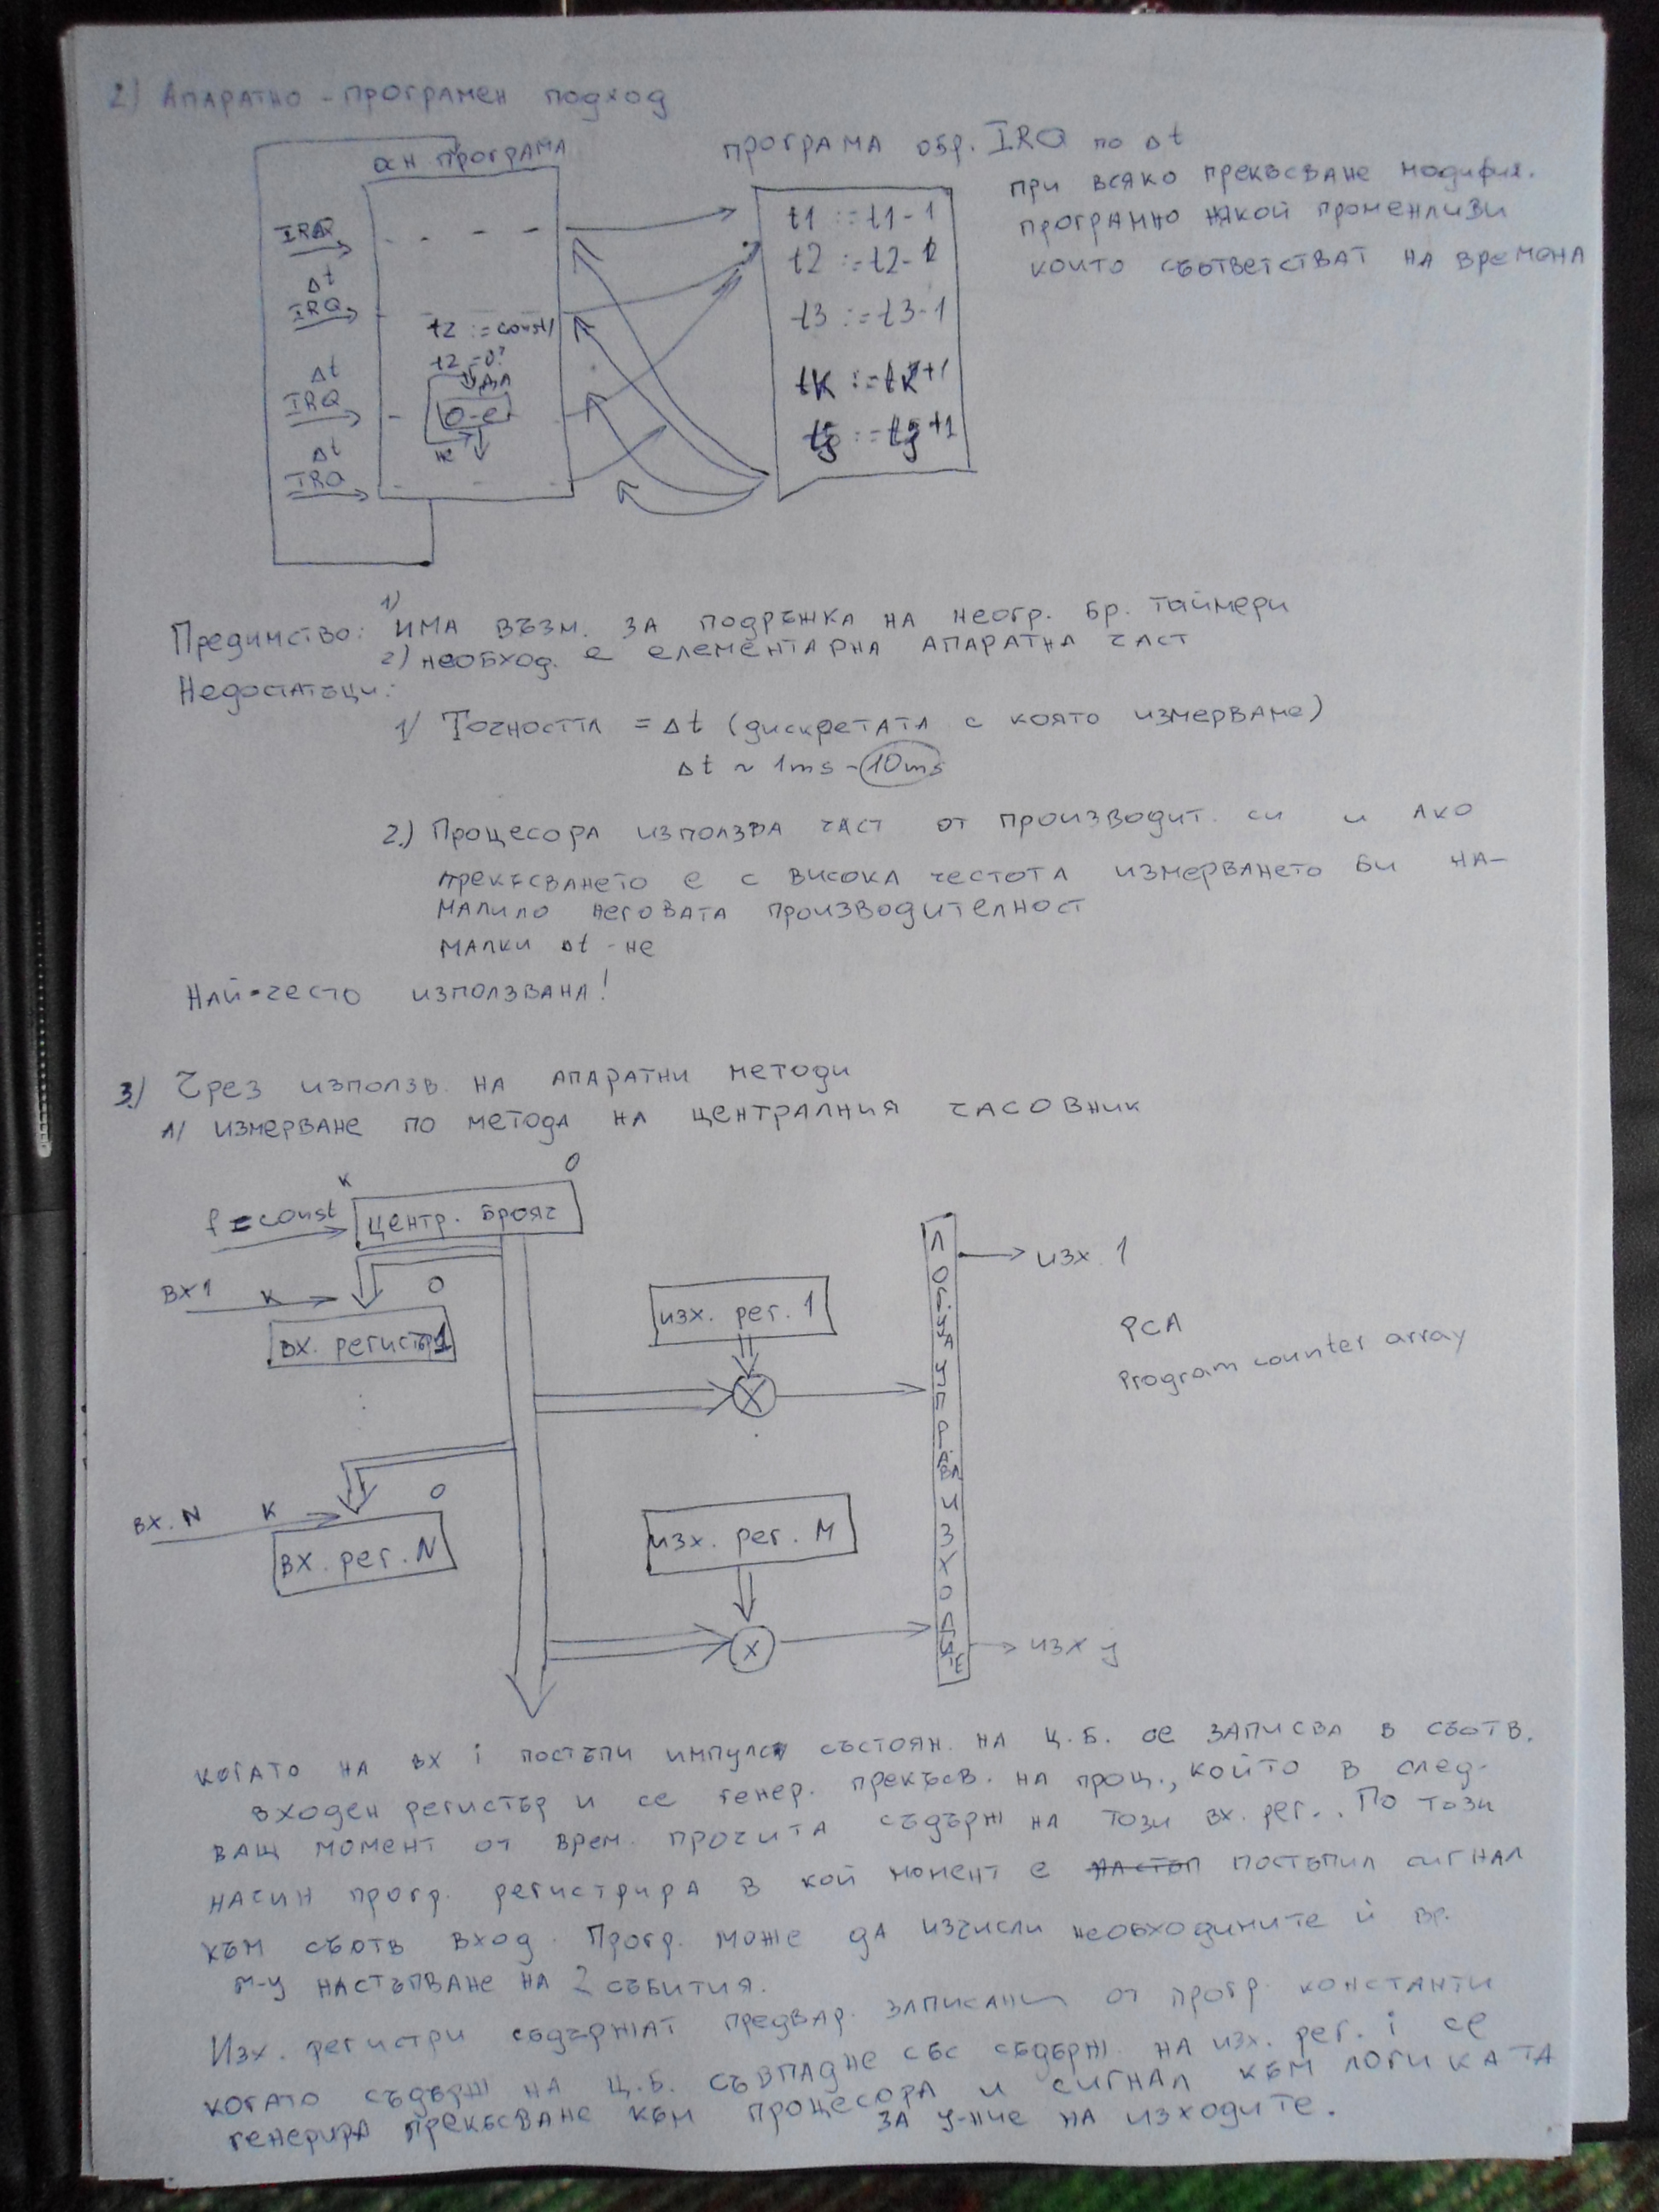 2) Апаратно - програмен подход
осн програма
програма обр. IRQ по Δt
при всяко прекъсване модифиц.
програмно някой променливи
които съответстват на времена
IRQ
Δt
IRQ
Δt
IRQ
Δt
IRQ
t2 := const
t2 = 0?
да
О-е
не
t1 := t1-1
t2 := t2-1
t3 := t3-1
tк := tк+1
tj := tj+1
Предимство: 1) има възм. за подръжка на неогр. бр. таймери
2) необход. е елементарна апаратна част
Недостатъци:
1/ Точността = Δt (дискретата с която измерваме)
Δt ~ 1ms - 10ms
2.) Процесора използва част от производит. си и ако
прекъсването е с висока честота измерването би на-
малило неговата производителност
малки Δt - не
Най-често използвана!
3.) Чрез използв. на апаратни методи
1/ измерване по метода на централния часовник
f = const
к
центр. брояч
0
вх 1
к
0
вх. регистър 1
вх. N
к
0
вх. рег. N
изх. рег. 1
X
изх. рег. М
X
логика управл изходите
изх. 1
изх j
PCA
Program counter array
когато на вх i постъпи импулс състоян. на Ц.Б. се записва в съотв.
входен регистър и се генер. прекъсв. на проц., който в след-
ващ момент от врем. прочита съдърж на този вх. рег.. По този
начин прогр. регистрира в кой момент е настъп постъпил сигнал
към съотв вход. Прогр. може да изчисли необходимите й вр.
м-у настъпване на 2 събития.
Изх. регистри съдържат предвар. записани от прогр. константи
когато съдърж на Ц.Б. съвпадне със съдърж. на изх. рег. i се
генерира прекъсване към процесора и сигнал към логиката
за у-ние на изходите.